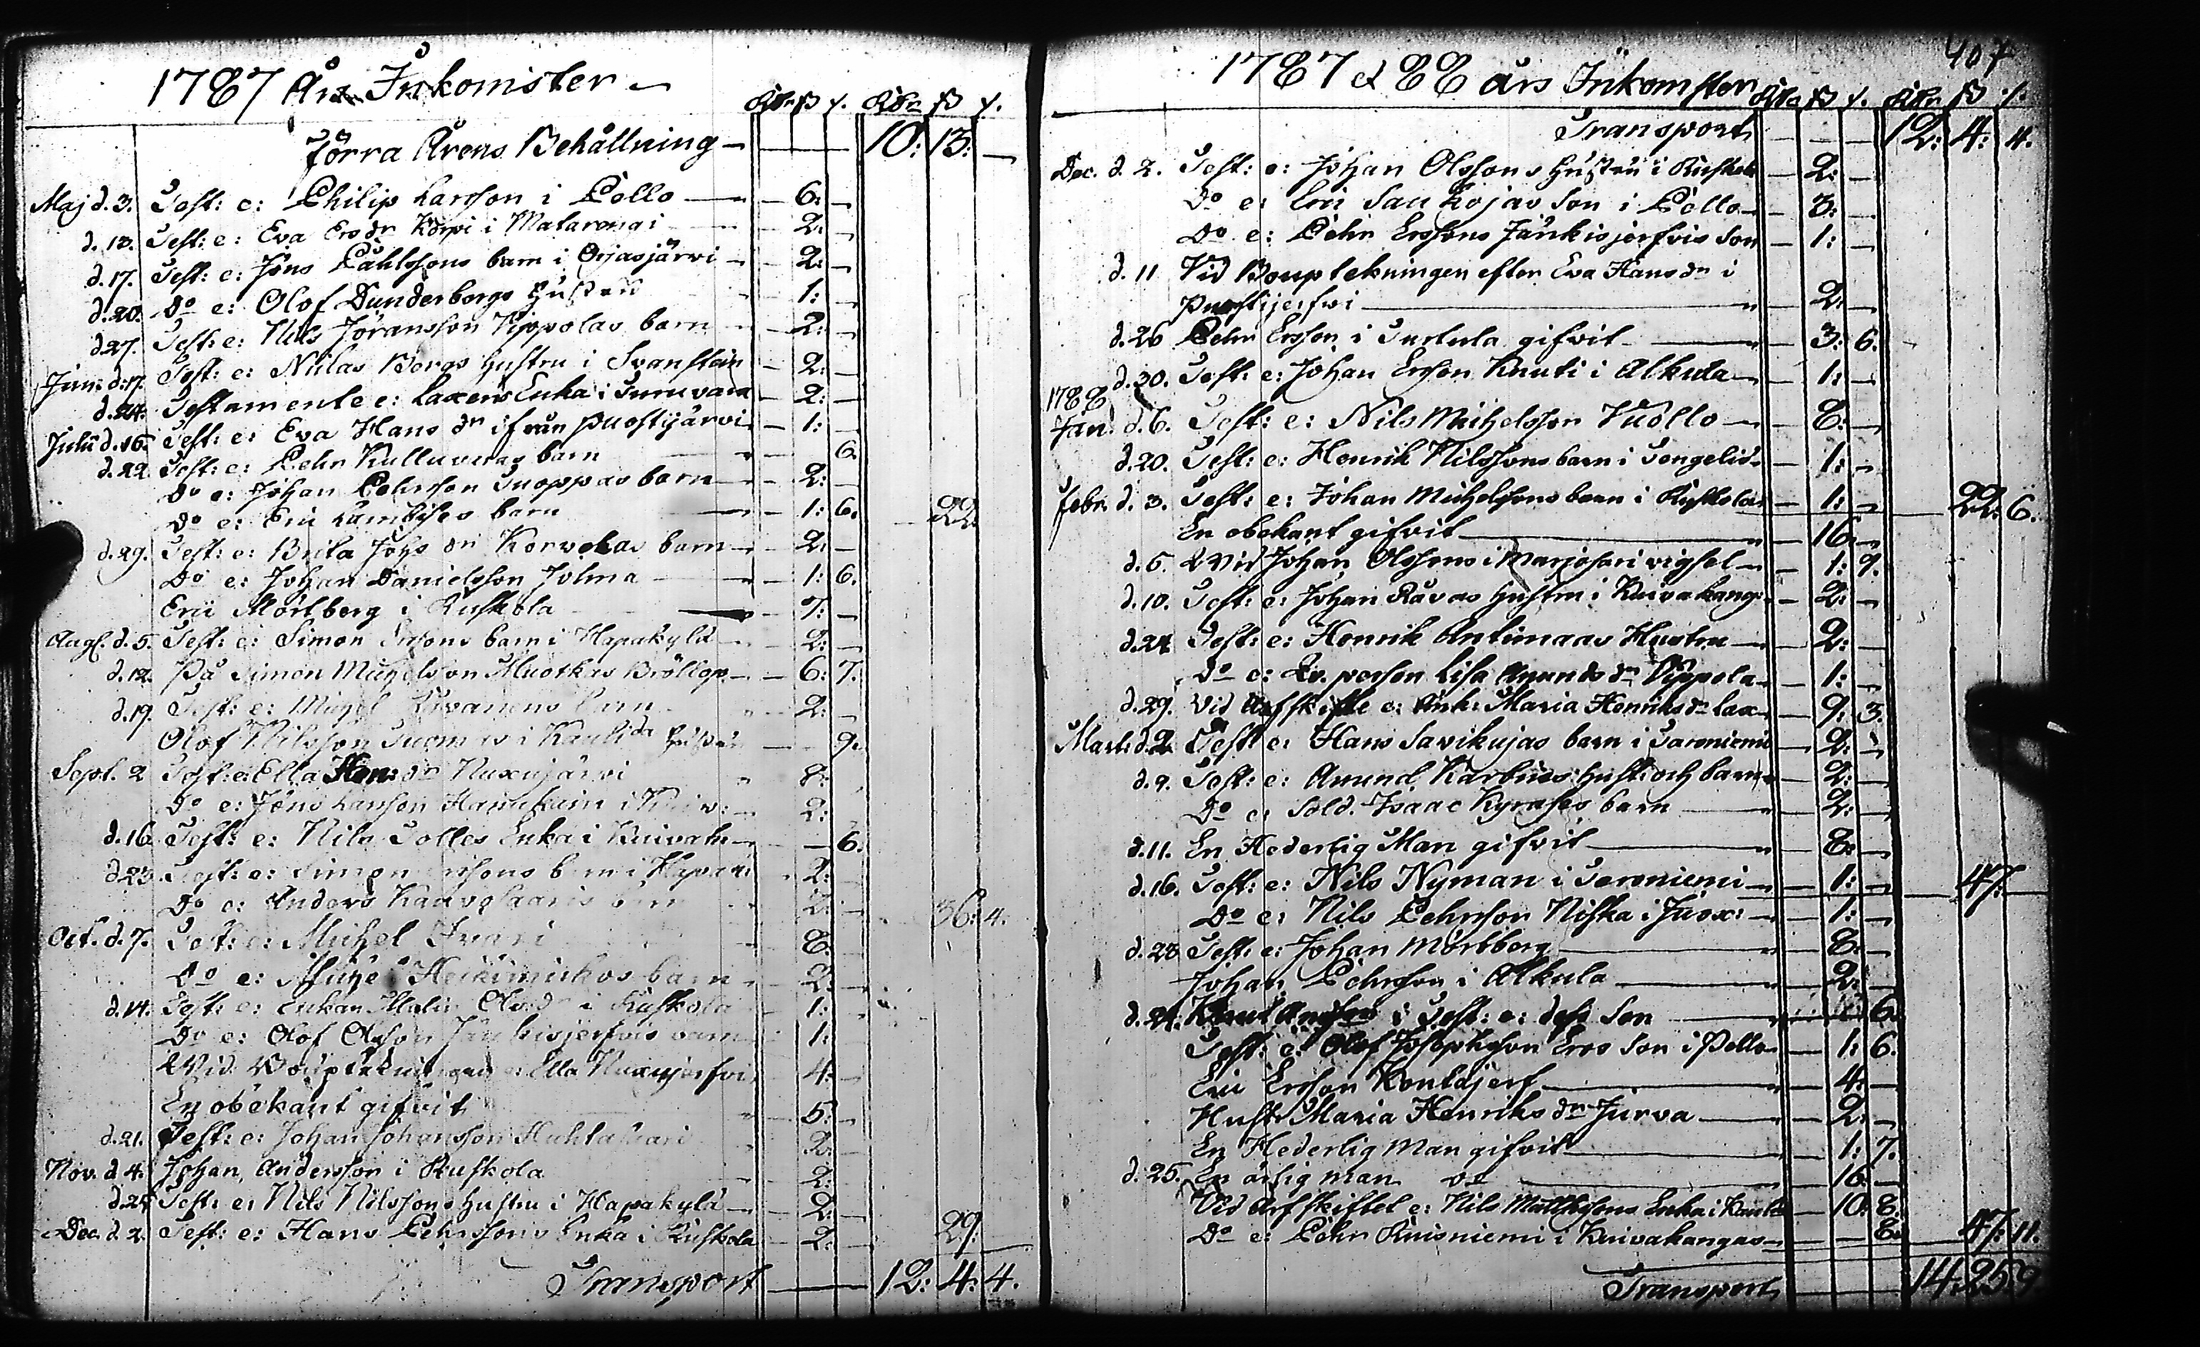 1787 Års Inkomster
Rdr ß /. Rdr ß /.
Förra Årens Behållning — 10: 13: —
Maj d. 3. Test: e: Philip Larsson i Pello — 6: —
d. 13. Test: e: Eva Ersdr Korpi i Matarengi — 2: —
d. 17. Test: e: Jöns Påhlssons barn i Orjasjärvi — 2: —
d. 20. Do e: Olof Dunderbergs Hustru — 1: —
d. 27. Test: e: Nils Jöransson Vippolas barn — 2: —
Junii d. 17. Test: e: Niklas Bergs hustru i Svanstein — 2: —
d. 24. Testamente e: Laxens Enka i Turtuvara — 2: —
Julii d. 15. Test: e: Eva Hans dr ifrån Puostijärvi — 1: —
d. 22. Test: e: Pehr Kulluveras barn — 6.
Do e: Johan Pehrsson Tuoppas barn — 2: —
Do e: Eric barn — 1: 6. 22
d. 29. Test: e: Brita Johs dr Korvokas barn — 2: —
Do e: Johan Danielsson Jolma — 1: 6.
Eric Mörtberg i Ruskola — 7: —
Aug. d. 5. Test: e: Simon barn i Hapakylä — 2: —
d. 12. På Simon Michelsson Muotkas Bröllop — 6: 7.
d. 19. Test: e: Michel barn — 2: —
Olof Nilsson i hustru — 9.
Sept. 2 Test: e: Ella Hen: dr Nuxujärvi 8:
Do e: Jöns Larsson i 2:
d. 16. Test: e: Nils Tolles Enka i Kuivak — 6.
d. 23. Test: e: Simon b rn i Hapaki 2:
Do e: Anders 2: — 36: 4.
Oct. d. 7. Test: e: Michel 8:
Do e: barn 2:
d. 14. Test: e: Enkan Malin Olsdr i Ruskola 1:
Do e: Olof Olsson Jänkisjerfvis barn 1:
Vid Bouptekningen e: Ella Nuxujerfvi 4: —
En obekant gifvit 5: —
d. 21. Test: e: Johan Johansson 2:
Nov. d. 4. Johan Andersson i Ruskola 2:
d. 25 Test: e: Nils Nilssons hustru i Hapakylä — 2: —
Dec. d. 2. Test: e: Hans Pehrssons Enka i Ruskola 2: — 29:
Transport — 12: 4: 4.
407
1787 & 88 års Inkomster
Rdr ß /. Rdr ß /.
Transport — 12: 4: 4.
Dec. d. 2. Test: e: Johan Olssons hustru i Ruskola 2: —
Do e: Eric Saukojas Son i Pello — 3: —
Do e: Pehr Erssons Jänkisjerfvis Son 1: —
d. 11 Vid Bouptekningen efter Eva Hans dr i
Puostijerfvi — 2: —
d. 26 Pehr Ersson i Turtula gifvit — 3: 6.
d. 30. Test: e: Johan Ersson Knuti i Alkula — 1: —
1788
Jan. d. 6. Test: e: Nils Michelsson Vuollo — 8: —
d. 20. Test: e: Henrik Nilssons barn i Tengelis — 1: —
Febr. d. 3. Test: e: Johan Michelssons barn i Ruskola 1: — 22: 6.
En obekant gifvit — 16. —
d. 5. Vid Johan Olssons i Marjosari vigsel — 1: 9.
d. 10. Test: e: Johan Ravas hustru i Kuivakang: 2: —
d. 24 Test: e: Henrik Antimaas Hustru — 2: —
Do e: Qv. person Lisa Amunds dr Vippola — 1: —
d. 29. Vid Arfskifte e: Enk: Maria Henriks dr Lax — 9: 3.
Mart. d. 2. Test: e: Hans Savikujas barn i Saroniemi 2: —
d. 9. Test: e: Amund Karbins hust: och barn 2: —
Do e: Sold. Isaac barn — 2: —
d. 11. En Hederlig Man gifvit — 8: —
d. 16. Test: e: Nils Nyman i Saroniemi — 1: — 47: —
Do e: Nils Pehrsson Niska i Juox: — 1: —
d. 23 Test: e: Johan Mörtberg — 8: —
Johan Pehrsson i Alkula — 2: —
d. 24. Knut i Test: e: dess Son — 6.
Test: e: Olof Josephsson Eros Son i Pello — 1: 6.
Eric Ersson Kontajerf — 4: —
Hust: Maria Henriks dr Jurva — 2: —
En Hederlig Man gifvit — 1: 7.
d. 25. En ärlig man do — 16: —
Vid Arfskiftet e: Nils Matthssons Enka i 10: 8.
Do e: Pehr Ruisniemi i Kuivakangas — 8. 47: 11.
Transport — 14: 25: 9.